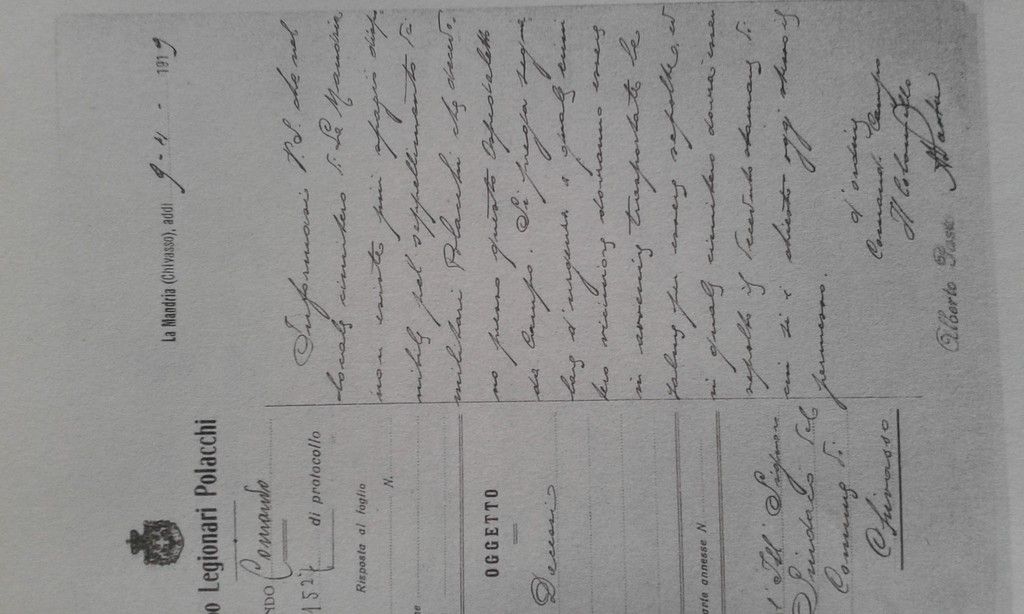 o Legionari Polacchi
NDO Comando
1527 di protocollo
Risposta al foglio
N.
OGGETTO
Decessi
arte annesse N.
Ill Signor
Sindaco del
Comune di
Chivasso
La Mandria (Chivasso), addì 9 - 11 - 1919
Informasi V.S. che nel
locale cimitero di La Mandria
non esiste più spazio dispo
nibile pel seppellimento di
militari Polacchi che decedo
no presso questo Ospedaletto
da Campo. Si prega
d'urgenza
vicinior dovranno essere
trasportate le
salme per essere sepolte, ed
in quale cimitero dovrà esser
sepolto il
cui si è chiesto oggi stesso il
permesso.
d'ordine
Comando Campo
Il Colonnello
Alberto Rossi